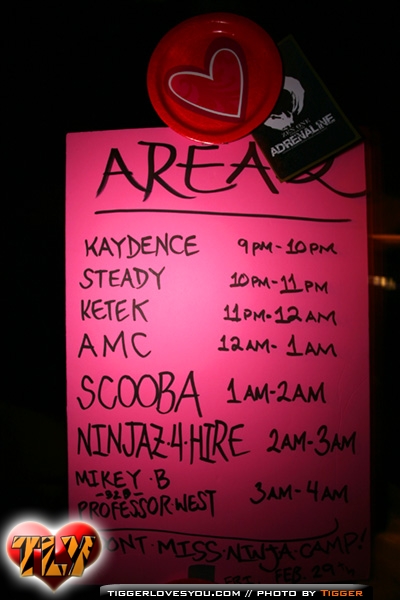 ADRENALINE
AREA 2
KAYDENCE 9PM-10PM
STEADY 10PM-11PM
KETEK 11PM-12AM
AMC 12AM-1AM
SCOOBA 1AM-2AM
NINJAZ·4·HIRE 2AM-3AM
MIKEY·B
-B2B- 3AM-4AM
PROFESSOR·WEST
DONT·MISS·NINJA·CAMP!
FRI FEB. 29TH
TLY
TIGGERLOVESYOU.COM // PHOTO BY TIGGER